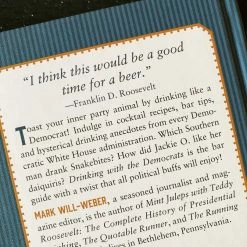 “I think this would be a good
time for a beer.”
—Franklin D. Roosevelt
Toast your inner party animal by drinking like a
Democrat! Indulge in cocktail recipes, bar tips,
and hysterical drinking anecdotes from every Demo-
cratic White House administration. Which Southern
man drank Snakebites? How did Jackie O. like her
daiquiris? Drinking with the Democrats is the bar
guide with a twist that all political buffs will enjoy!
MARK WILL-WEBER, a seasoned journalist and mag-
azine editor, is the author of Mint Juleps with Teddy
Roosevelt: The Complete History of Presidential
The Quotable Runner, and The Running
lives in Bethlehem, Pennsylvania.